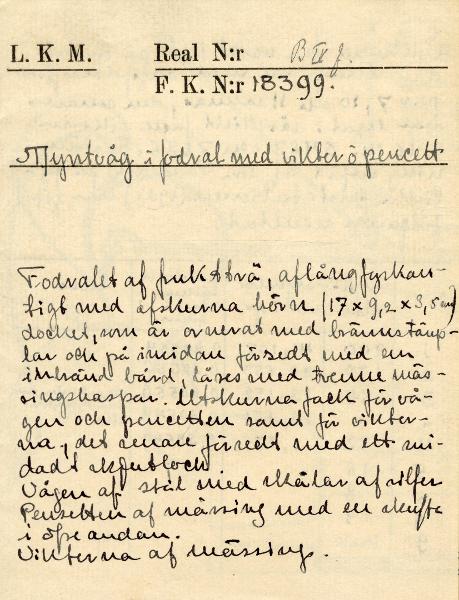 L. K. M. Real N:r B IV f.
F. K. N:r 18399.
Myntvåg i fodral med vikter o pencett
Fodralet af fruktträ, aflångfyrkan-
tigt med afskurna hörn (17 x 9,2 x 3,5 cm)
locket, som är ornerat med brännstämp-
lar och på insidan försedt med en
inbränd bård, låses med trenne mäs-
singshaspar. Utskurna fack för vå-
gen och pencetten samt för vikter-
na, det senare försedt med ett smi-
dadt skjutlock.
Vågen af stål med skålar af silfver
Pensetten af mässing med en skufta
i öfre andan.
Vikterna af mässing.